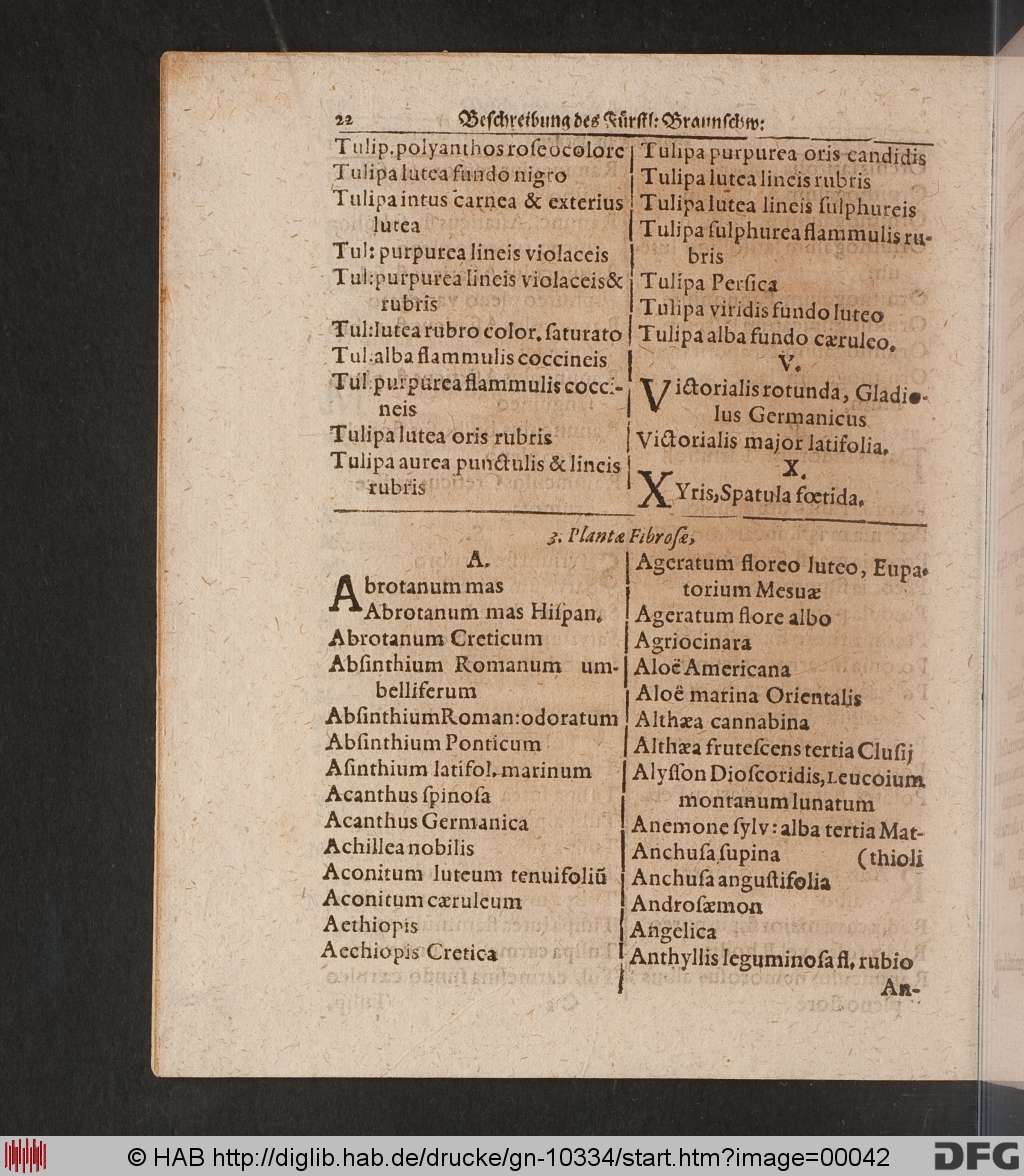 22 Beſchreibung des Fürſtl: Braunſchw:
Tulip. polyanthos roſeo colore
Tulipa lutea fundo nigro
Tulipa intus carnea & exterius
lutea
Tul: purpurea lineis violaceis
Tul: purpurea lineis violaceis &
rubris
Tul: lutea rubro color. ſaturato
Tul. alba flammulis coccineis
Tul purpurea flammulis cocci-
neis
Tulipa lutea oris rubris
Tulipa aurea punctulis & lineis
rubris
Tulipa purpurea oris candidis
Tulipa lutea lineis rubris
Tulipa lutea lineis ſulphureis
Tulipa ſulphurea flammulis ru-
bris
Tulipa Perſica
Tulipa viridis fundo luteo
Tulipa alba fundo cæruleo.
V.
Victorialis rotunda, Gladio-
lus Germanicus
Victorialis major latifolia.
X.
XYris, Spatula fœtida.
3. Plantæ Fibroſæ,
A.
Abrotanum mas
Abrotanum mas Hiſpan.
Abrotanum Creticum
Abſinthium Romanum um-
belliferum
Abſinthium Roman: odoratum
Abſinthium Ponticum
Aſinthium latifol. marinum
Acanthus ſpinoſa
Acanthus Germanica
Achillea nobilis
Aconitum luteum tenuifoliũ
Aconitum cæruleum
Aethiopis
Aechiopis Cretica
Ageratum floreo luteo, Eupa-
torium Mesuæ
Ageratum flore albo
Agriocinara
Aloë Americana
Aloë marina Orientalis
Althæa cannabina
Althæa fruteſcens tertia Cluſij
Alyſſon Dioſcoridis, Leucoium
montanum lunatum
Anemone ſylv: alba tertia Mat-
Anchuſa ſupina (thioli
Anchuſa anguſtifolia
Androſæmon
Angelica
Anthyllis leguminoſa fl. rubio
An-
© HAB http://diglib.hab.de/drucke/gn-10334/start.htm?image=00042
DFG